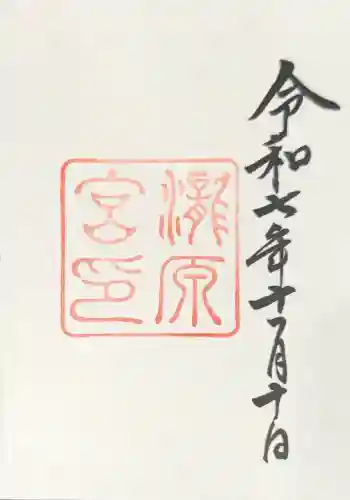 令和七年十一月十日
瀧原
宮印